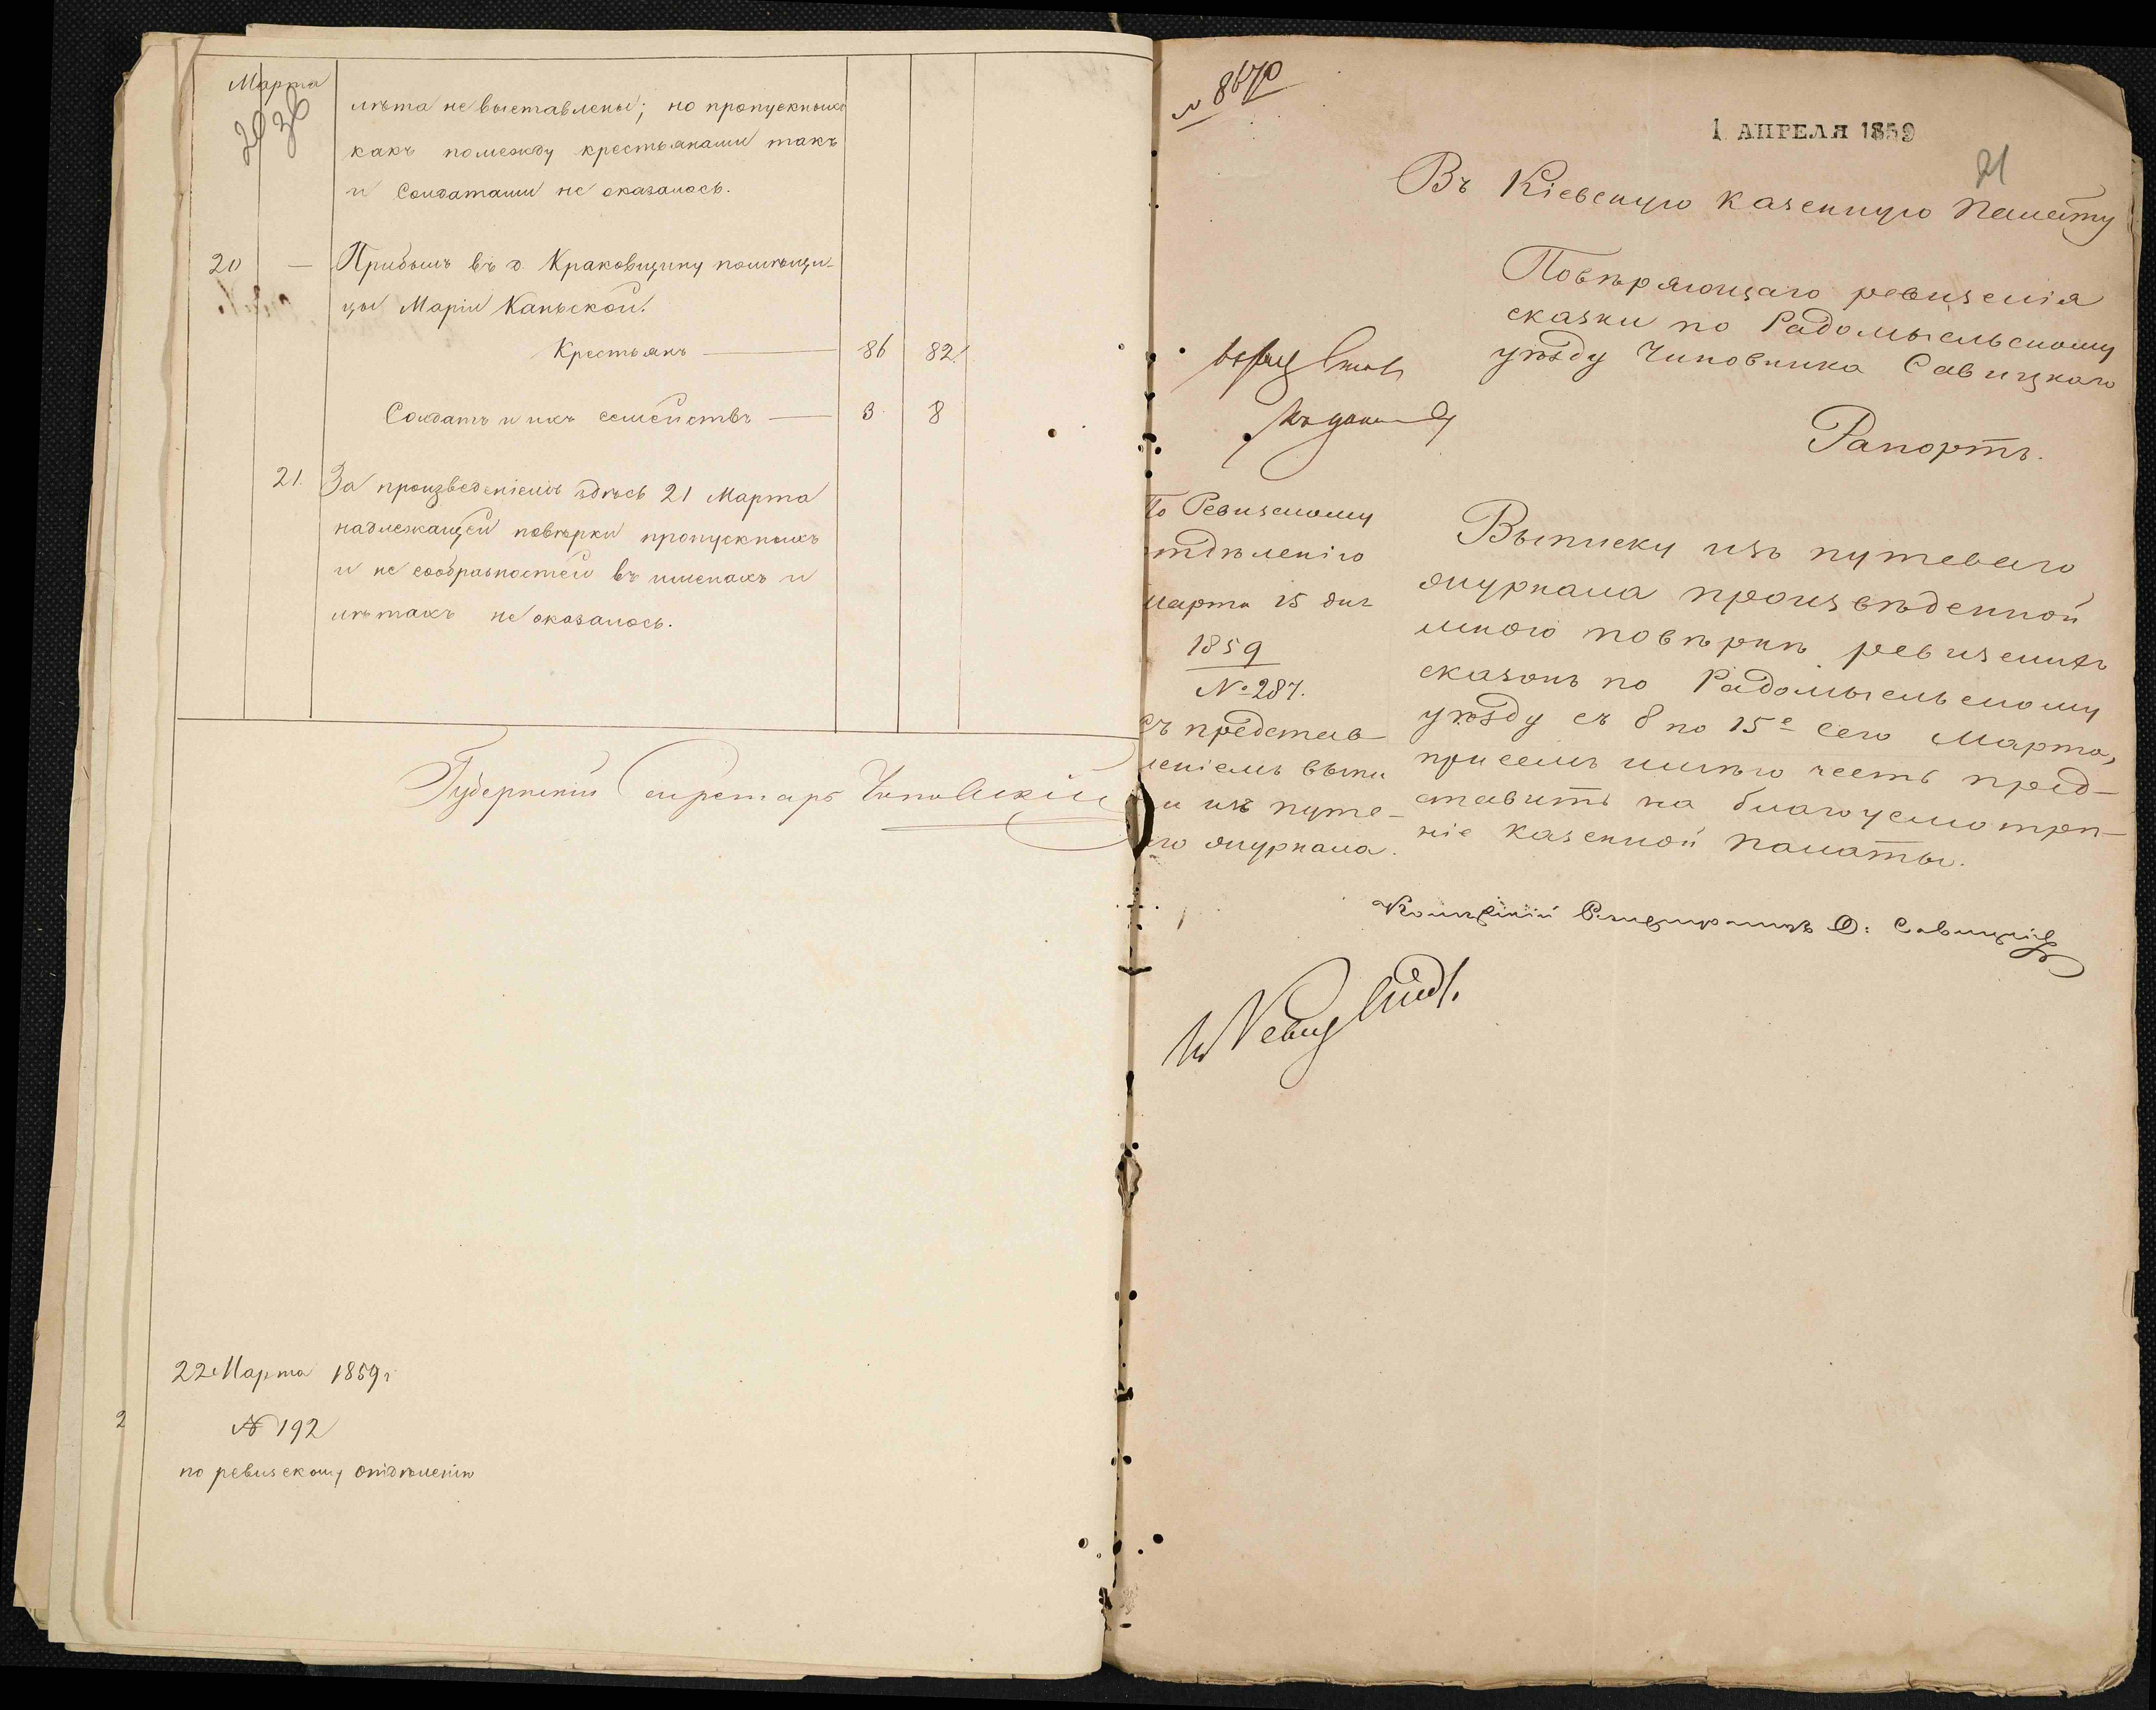 Марта
20 зв
лѣта не выставлены; но пропускныхъ
какъ помежду крестьянами такъ
и Солдатами не оказалось.
20 — Прибылъ въ д. Краковщину помѣщи-
цы Маріи Каньской.
Крестьянъ — 86 82
Солдатъ и ихъ семействъ — 3 8
21. За произведеніемъ здѣсь 21 Марта
надлежащей повѣрки пропускныхъ
и не сообразностей въ именахъ и
лѣтахъ не оказалось.
Губернскій Секретарь
22 Марта 1859 г
№ 192
по ревизскому отдѣленію
2
№ 8670
1 АПРЕЛЯ 1859
21
Въ Кіевскую Казенную Палату
Повѣряющаго ревизскія
сказки по Радомысльскому
уѣзду Чиновника Савицкаго
Рапортъ.
По Ревизскому
отдѣленію
Марта 15 дня
1859
№ 287.
Съ представ-
леніемъ выпи
и изъ путе-
го журнала.
Выписку изъ путеваго
журнала произвѣденной
мною повѣрки ревизскихъ
сказокъ по Радомысльскому
уѣзду съ 8 по 15е сего Марта,
при семъ имѣю честь пред-
ставить на благоусмотрѣ-
ніе Казенной Палаты.
Коллежскій Регистраторъ О: Савицкій